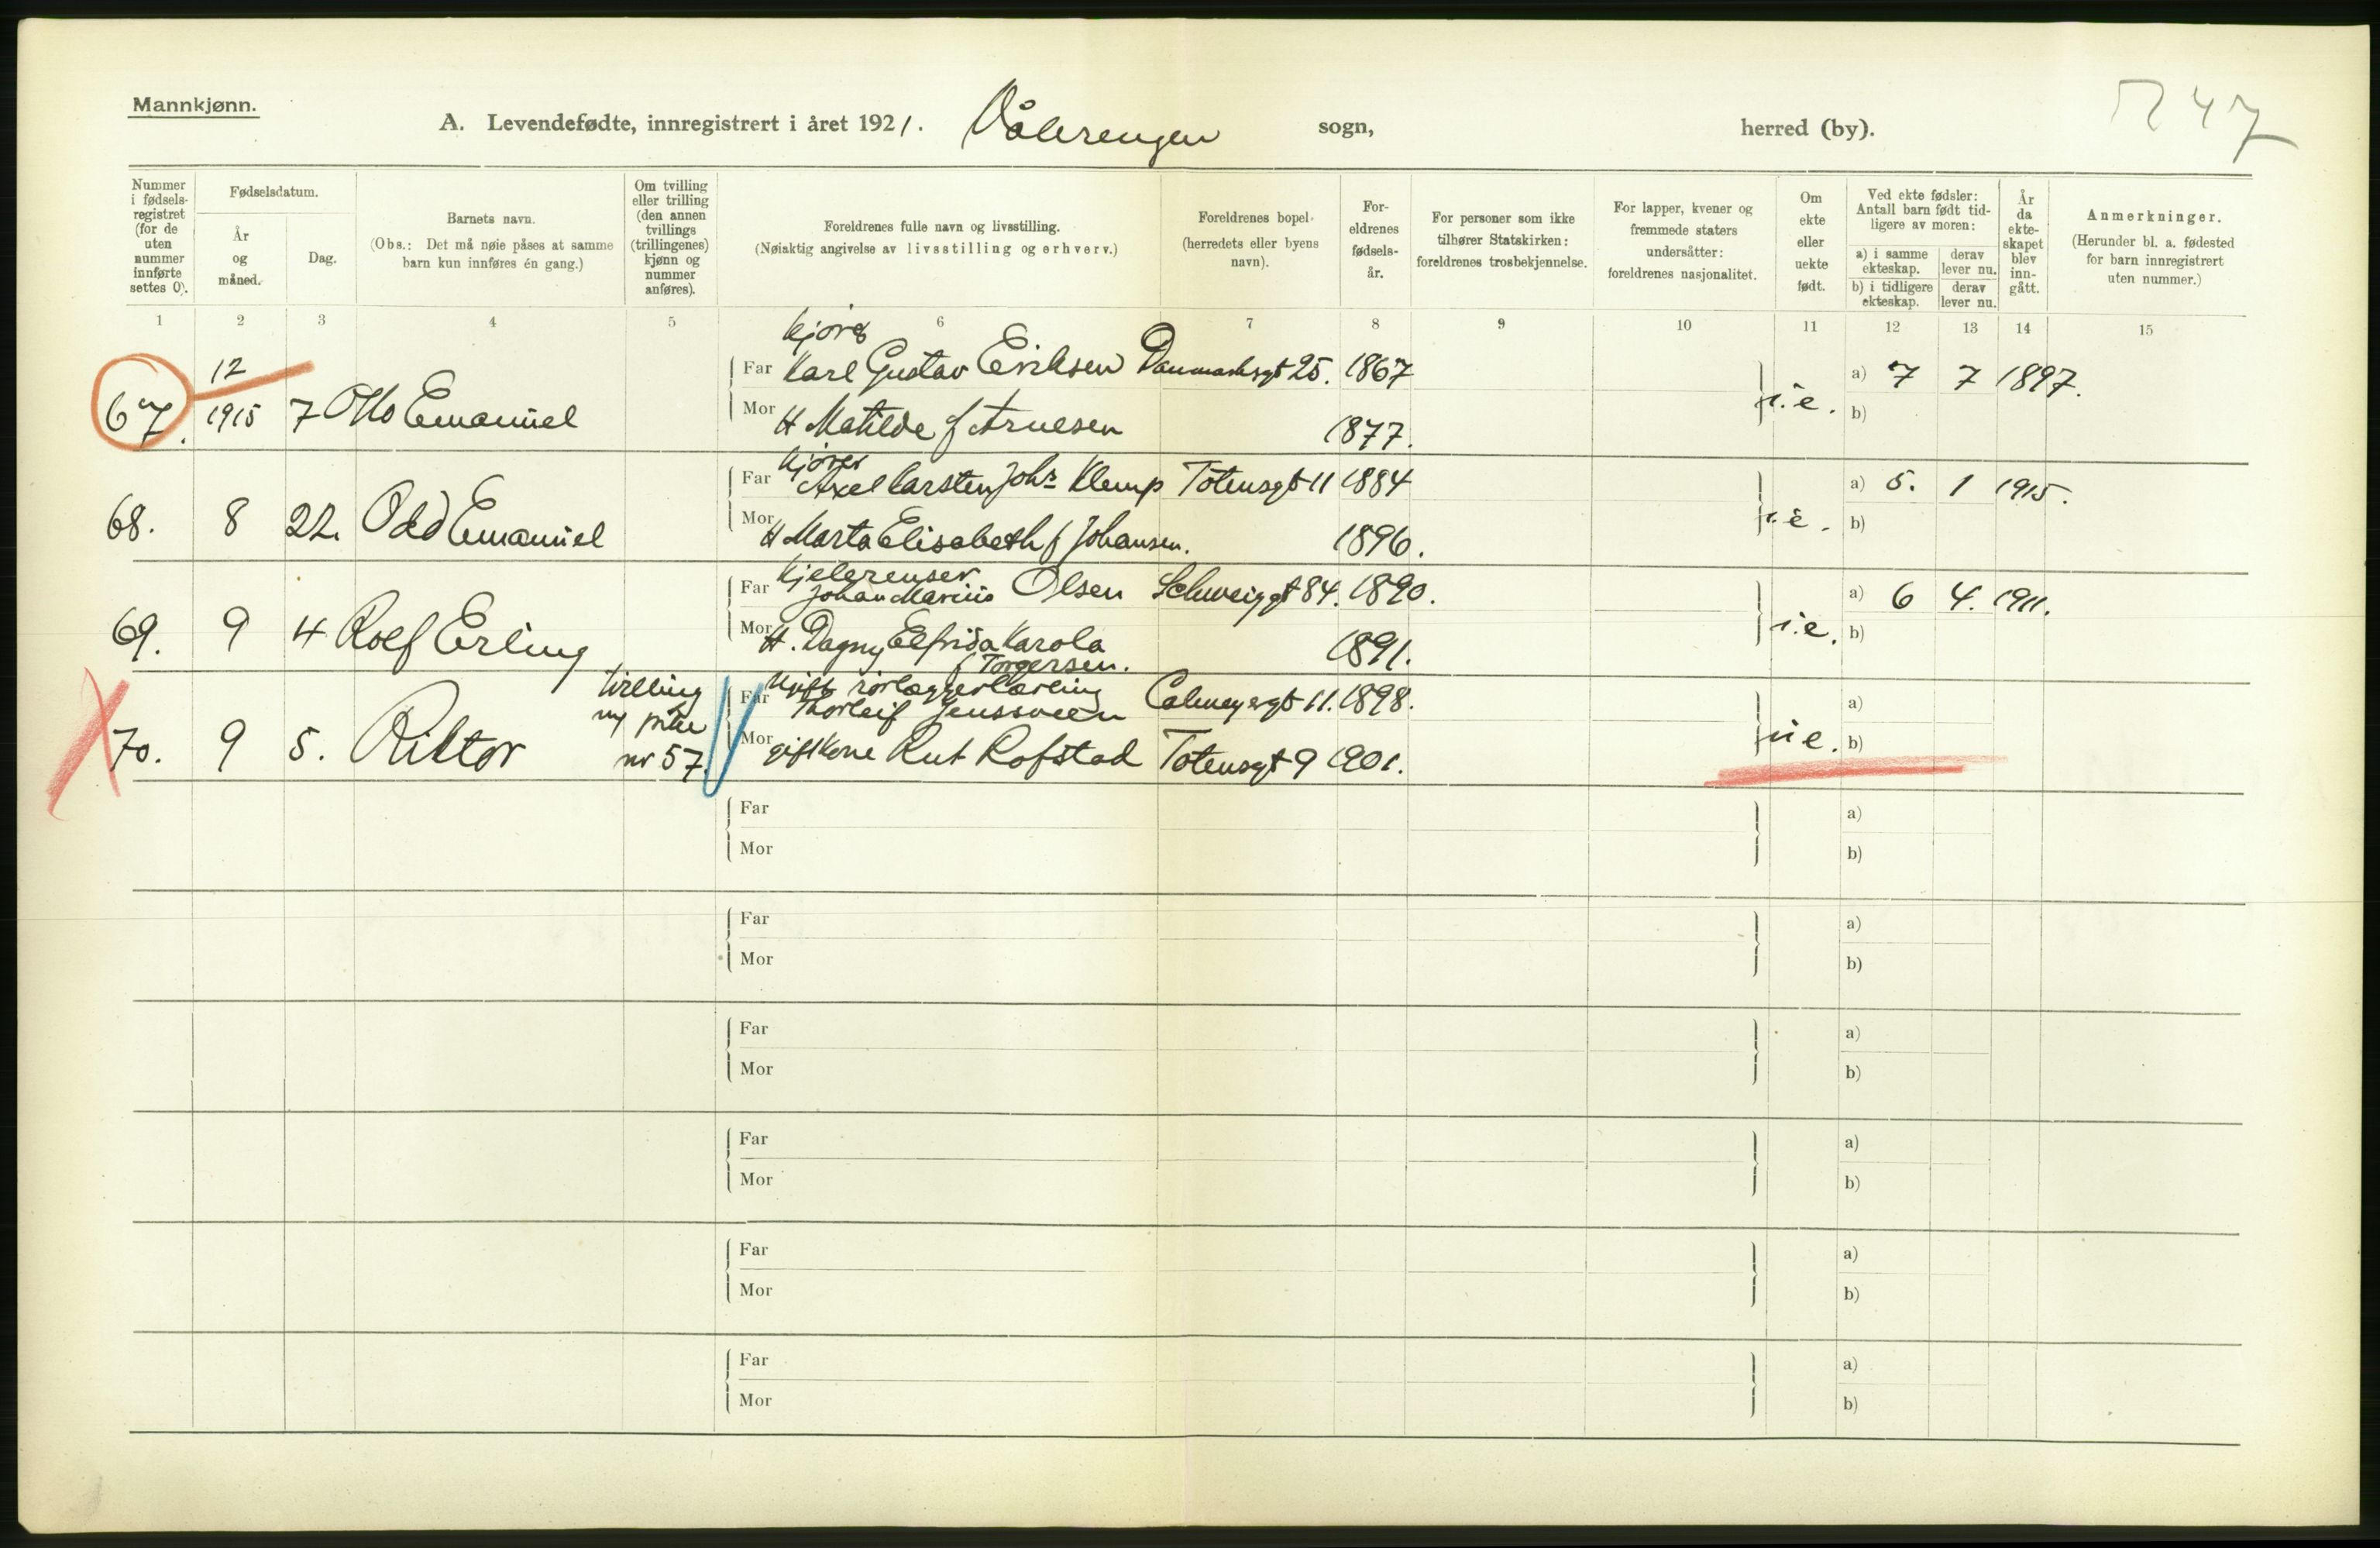 Mannkjønn.
A. Levendefødte, innregistrert i året 1921. Vålerengen sogn, herred (by).
47
Nummer i fødsels-registret (for de uten nummer innførte settes 0).
Fødselsdatum.
År og måned.
Dag.
Barnets navn.
(Obs.: Det må nøie påses at samme barn kun innføres én gang.)
Om tvilling eller trilling (den annen tvillings (trillingenes) kjønn og nummer anføres).
Foreldrenes fulle navn og livsstilling.
(Nøiaktig angivelse av livsstilling og erhverv.)
Foreldrenes bopel.
(herredets eller byens navn).
For-eldrenes fødsels-år.
For personer som ikke tilhører Statskirken: foreldrenes trosbekjennelse.
For lapper, kvener og fremmede staters undersåtter: foreldrenes nasjonalitet.
Om ekte eller uekte født.
Ved ekte fødsler: Antall barn født tid-ligere av moren:
a) i samme ekteskap.
derav lever nu.
b) i tidligere ekteskap.
derav lever nu.
År da ekte-skapet blev inn-gått.
Anmerkninger.
(Herunder bl. a. fødested for barn innregistrert uten nummer.)
1 2 3 4 5 6 7 8 9 10 11 12 13 14 15
kjører
12 Far Karl Gustav Eriksen Danmarksgt 25. 1867 a) 7 7 1897.
67. 1915 7 Otto Emanuel Mor H Matilde f Arnesen 1877. i.e. b)
kjører
Far Axel Carsten Johs Klemp Totensgt 11 1884 a) 5. 1 1915.
68. 8 22. Odd Emanuel Mor H Marta Elisabeth f Johansen. 1896. i.e. b)
kjelerenser
Far Johan Marius Olsen Schweiggt 84. 1890. a) 6 4. 1911.
69. 9 4 Rolf Erling Mor H. Dagny Elfrida Karola 1891. i.e. b)
f Torgersen.
tvilling ugift rørlæggerlærling
Far Thorleif Jenssveen Calmeyergt 11. 1898. a)
70. 9 5. Riktor nr 57. Mor gift kone Rut Rofstad Totensgt 9 1901. u e. b)
Far a)
Mor b)
Far a)
Mor b)
Far a)
Mor b)
Far a)
Mor b)
Far a)
Mor b)
Far a)
Mor b)